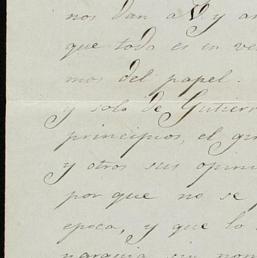 nos dan a V y a
que todo es in ve
mos del papel.
y solo de Gutierr
principios, el gr
y otros sus opini
por que no se
epoca, y que lo
narquia sin nom